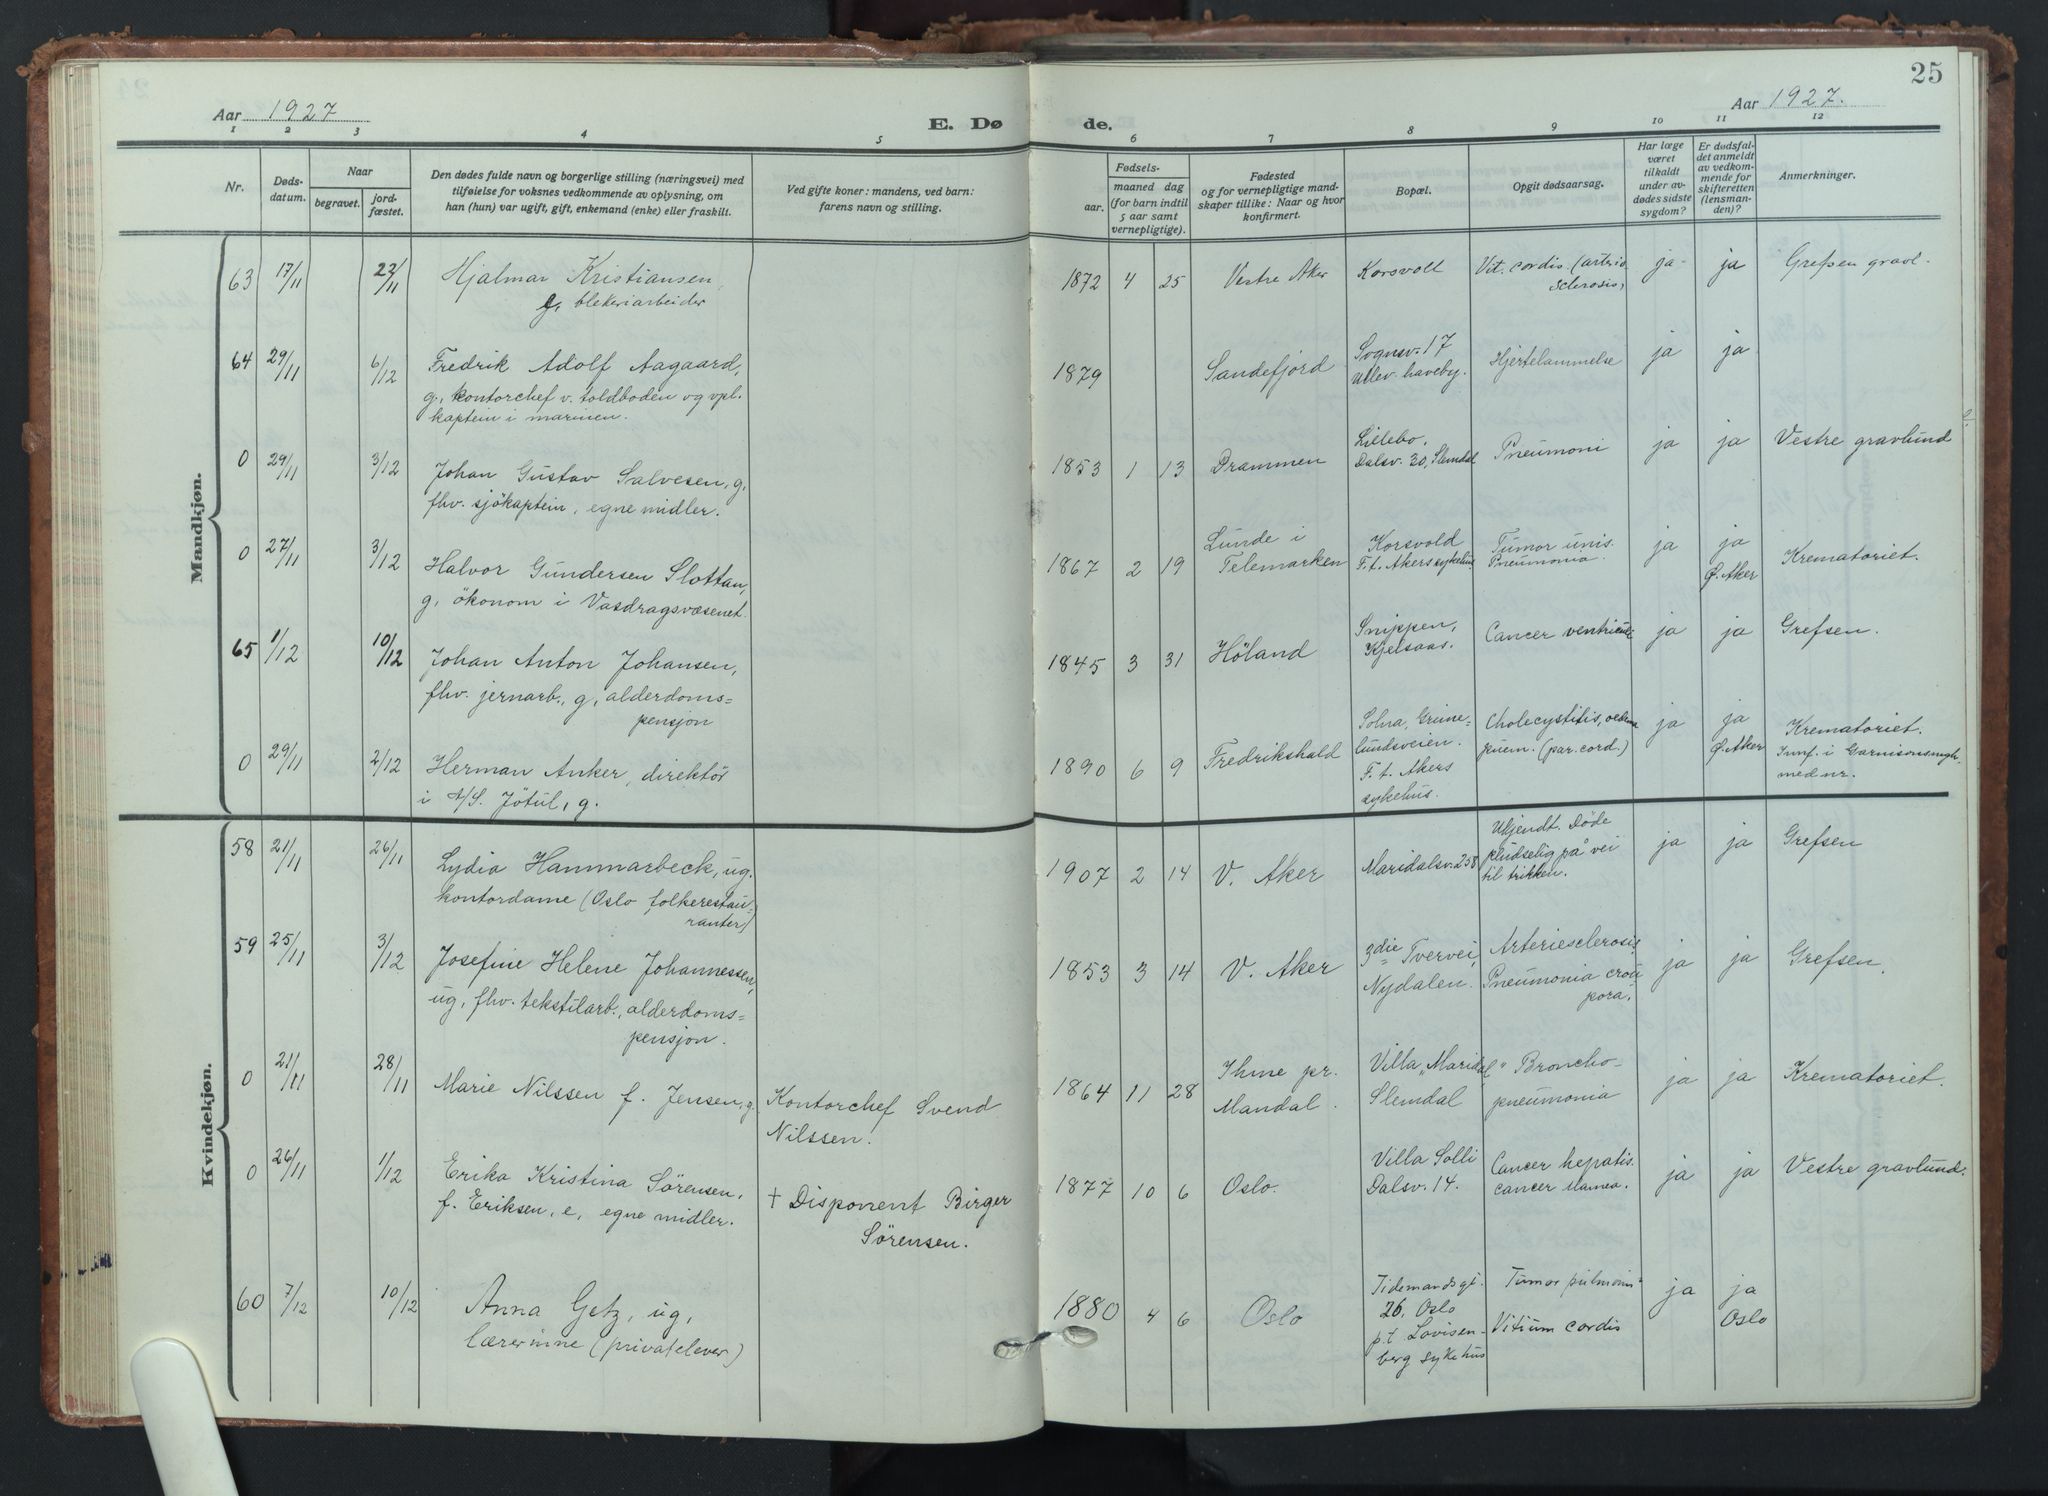 25
Aar 1927
E. Døde.
Aar 1927.
1 2 3 4 5 6 7 8 9 10 11 12
Nr.
Dødsdatum.
Naar
begravet.
jordfæstet.
Den dødes fulde navn og borgerlige stilling (næringsvei) med
tilføielse for voksnes vedkommende av oplysning, om
han (hun) var ugift, gift, enkemand (enke) eller fraskilt.
Ved gifte koner: mandens, ved barn:
farens navn og stilling.
Fødsels-
aar.
maaned dag
(for barn indtil
5 aar samt
vernepligtige).
Fødested
og for vernepligtige mand-
skaper tillike: Naar og hvor
konfirmert.
Bopæl.
Opgit dødsaarsag.
Har læge
været
tilkaldt
under av-
dødes sidste
sygdom?
Er dødsfal-
det anmeldt
av vedkom-
mende for
skifteretten
(lensman-
den)?
Anmerkninger.
Mandkjøn.
63 17/11 23/11 Hjalmar Kristiansen,
g, blekeriarbeider
1872 4 25 Vestre Aker Korsvolt Vit. cordis. (arterio
sclerosis, ja- ja Grefsen gravl.
64 29/11 6/12 Fredrik Adolf Aagaard,
g., kontorchef v. toldboden og vpl.
kaptein i marinen.
1879 Sandefjord Sognsv. 17
Ullev. haveby. Hjertelammelse ja ja
0 29/11 3/12 Johan Gustav Salvesen, g,
fhv. sjökaptein, egne midler.
1853 1 13 Drammen Lillebo,
Dalsv. 30, Slemdal Pneumoni ja ja Vestre gravlund
0 27/11 3/12 Halvor Gundersen Slottan,
g, økonom i Vasdragsvæsenet.
1867 2 19 Lunde i
Telemarken Korsvold
F. t. Akers sykehus Tumor
Pneumonia. ja ja
Ø. Aker Krematoriet.
65 1/12 10/12 Johan Anton Johansen,
fhv. jernarb., g, alderdoms=
pensjon
1845 3 31 Høland Snippen,
Kjelsaas. Cancer ventriculi ja ja Grefsen.
0 29/11 2/12 Herman Anker, direktör
i A/S. Jötul, g.
1890 6 9 Fredrikshald Solua, Grime-
lundsveien.
F. t. Akers
sykehus. Cholecystitis, oedema
puem. (par. cord.) ja ja
Ø. Aker Krematoriet.
i Garnisons
med nr.
Kvindekjøn.
58 21/11 26/11 Lydia Hammarbeck, ug.
kontordame (Oslo folkerestau-
ranter)
1907 2 14 V. Aker Maridalsv. 258 Ukjendt. Döde
pludselig på vei
til trikken. ja ja Grefsen
59 25/11 3/12 Josefine Helene Johannessen,
ug, fhv. tekstilarb., alderdoms=
pensjon.
1853 3 14 V. Aker 3die Tvervei,
Nydalen. Arteriesclerosis,
Pneumonia crou
pora. ja ja Grefsen.
0 21/11 28/11 Marie Nilssen f. Jensen, g. Kontorchef Svend
Nilssen.
1864 11 28 Ihme pr.
Mandal. Villa „Maridal"
Slemdal Broncho-
pneumonia ja ja Krematoriet.
0 26/11 1/12 Erika Kristina Sørensen,
f. Eriksen, e, egne midler. † Disponent Birger
Sörensen.
1877 10 6 Oslo. Villa Solli
Dalsv. 14. Cancer hepatis.
cancer Mamea. ja ja Vestre gravlund.
60 7/12 10/12 Anna Getz, ug,
lærerinne (privatelever)
1880 4 6 Oslo Tidemandsgt.
26, Oslo
p.t. Lovisen-
berg sykehus Tumor pulmonis
Vitium cordis ja ja
Oslo